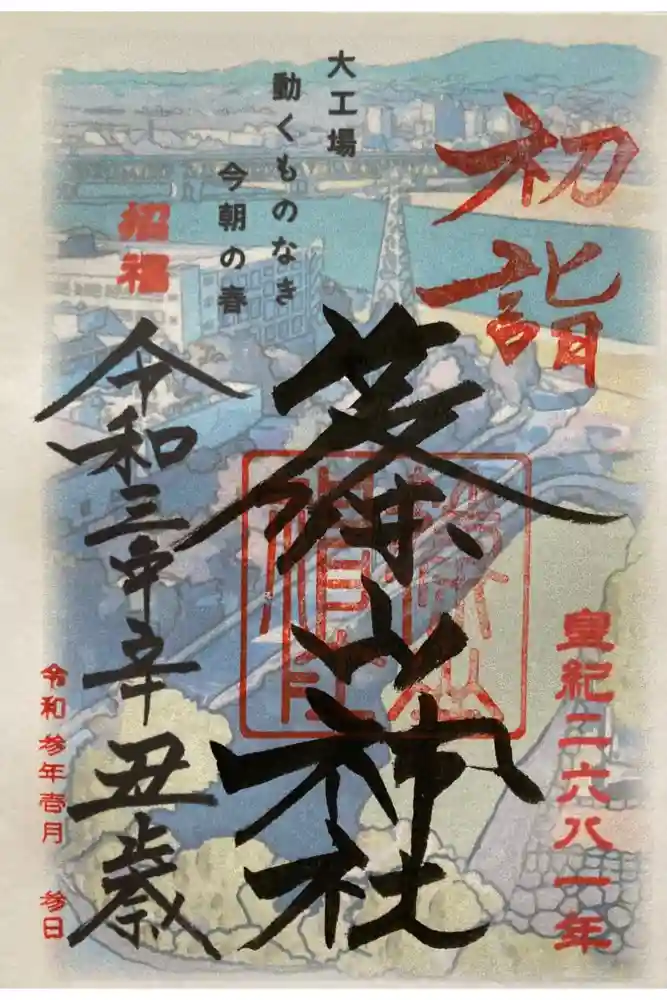 初詣
大工場
動くものなき
今朝の春
招福
篠山神社
皇紀二六八一年
令和三年辛丑歳
令和参年壱月　参日